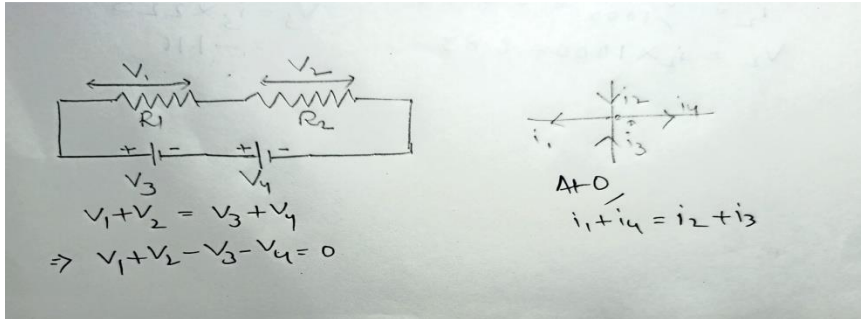 V₁ V₂
R₁ R₂
+ - + -
V₃ V₄
V₁+V₂ = V₃+V₄
⇒ V₁+V₂-V₃-V₄=0
i₂ i₄
i₁ o i₃
At O
i₁+i₄ = i₂+i₃